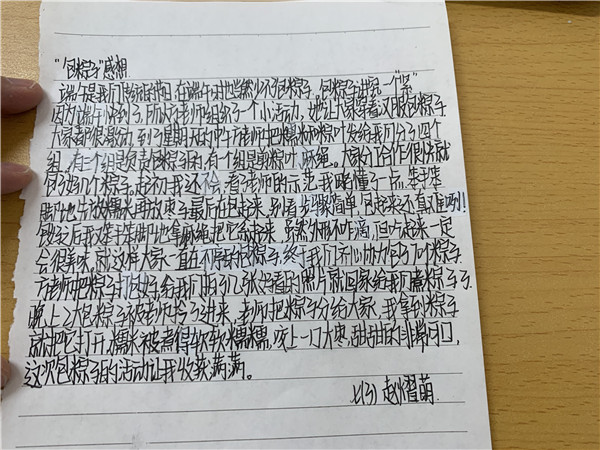 "包粽子"感想
端午是我们传统的节日,在端午时当然少不了包粽子。包粽子讲究一个"紧"
因为端午快到了,所以方老师组织了一个小活动,她让大家穿着汉服包粽子。
大家都很激动,到了星期天的中午方老师把糯米和粽叶发给我们分了四个
组,有三个组是负责包粽子的,有一个组是剪粽叶、麻绳。大家分工合作很快就
包了好几个粽子,起初我还不会,看老师的示范我略懂了一点。笨手笨
脚地先放糯米再放枣子最后在包起来,别看步骤简单,包起来还真难啊!
包好之后我笨手笨脚地拿麻绳把它系起来,虽然外形不咋滴,但吃起来一定
会很美味,就这样大家一直在不停的包粽子,终于我们齐心协力包了个粽子。
方老师把粽子打包好,给我们拍了几张好看的照片就回家给我们煮粽子了。
晚上2大包粽子被老师拎了过来,老师把粽子分给大家,我拿到粽子
就把它打开,糯米被煮得软软糯糯,咬上一口大枣,甜甜的非常可口,
这次包粽子的活动让我收获满满。
七(3) 赵熠萌